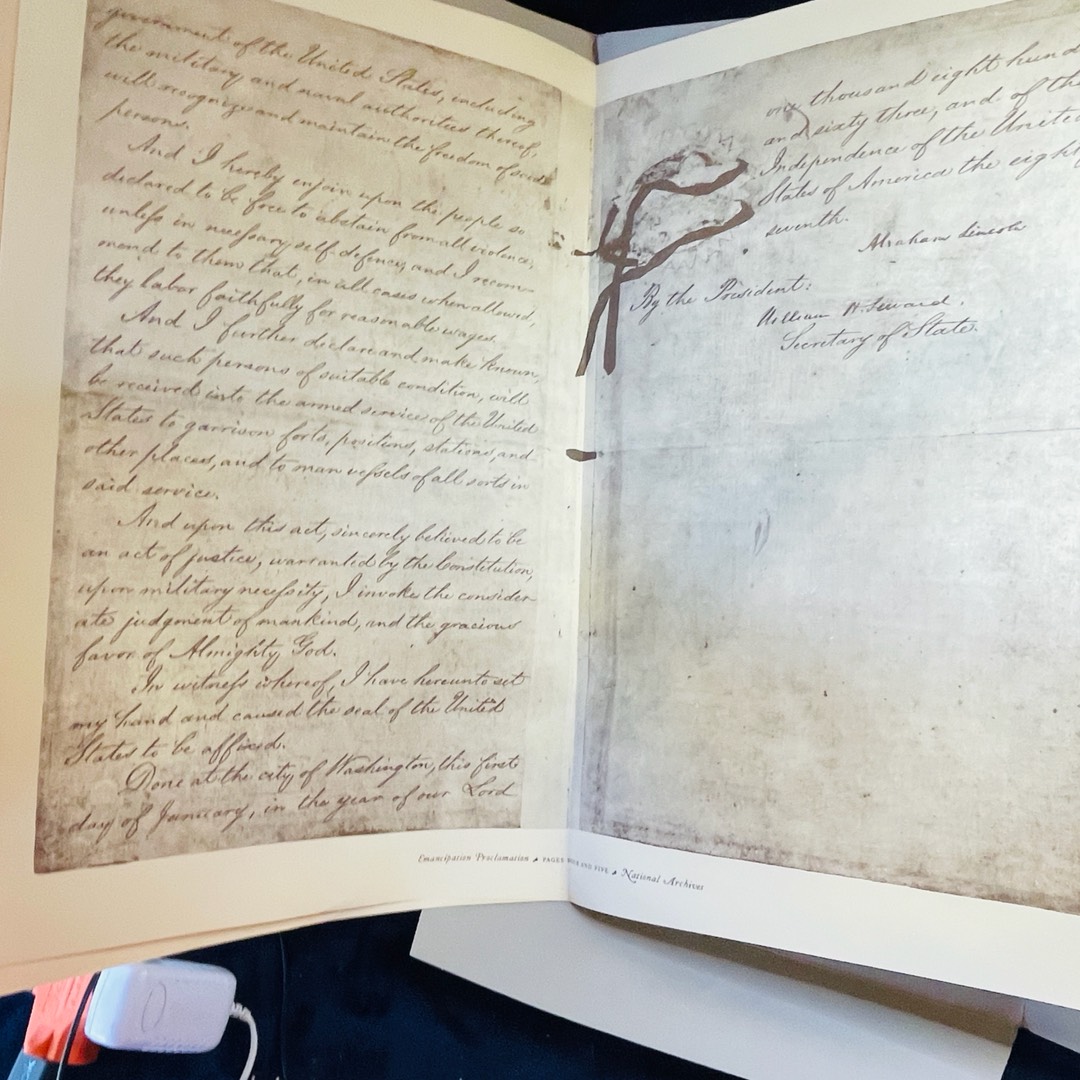 government of the United States, including
the military and naval authorities thereof,
will recognize and maintain the freedom of said
persons.
And I hereby enjoin upon the people so
declared to be free to abstain from all violence,
unless in necessary self-defence; and I recom-
mend to them that, in all cases when allowed,
they labor faithfully for reasonable wages.
And I further declare and make known,
that such persons of suitable condition, will
be received into the armed service of the United
States to garrison forts, positions, stations, and
other places, and to man vessels of all sorts in
said service.
And upon this act, sincerely believed to be
an act of justice, warranted by the Constitution,
upon military necessity, I invoke the consider-
ate judgment of mankind, and the gracious
favor of Almighty God.
In witness whereof, I have hereunto set
my hand and caused the seal of the United
States to be affixed.
Done at the city of Washington, this first
day of January, in the year of our Lord
one thousand eight hund
and sixty three, and of the
Independence of the United
States of America the eight
seventh.
Abraham Lincoln
By the President:
William H. Seward.
Secretary of State.
Emancipation Proclamation PAGES FOUR AND FIVE National Archives